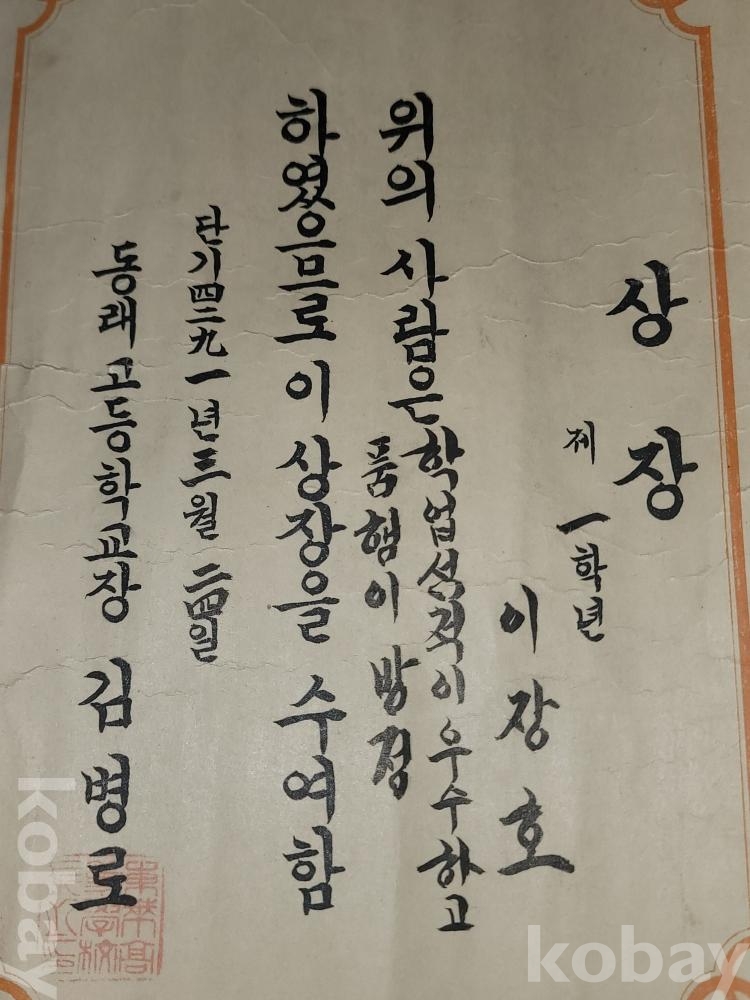 상장
제 一학년
이장호
위의 사람은 학업성적이 우수하고
품행이 방정
하였으므로 이 상장을 수여함
단기四二九一년 三월 二四일
동래고등학교장 김병로
kobay
kobay